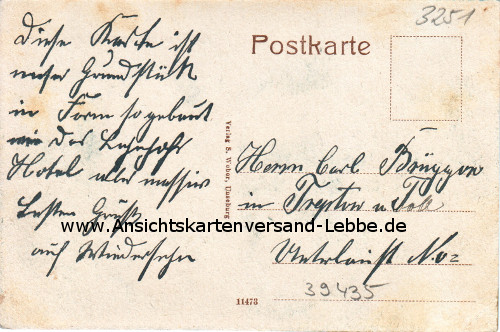 3251
Postkarte
Diese Karte ist
unser Grundstück
in Form so gebaut
wie das Bahnhofs
Hotel aber massiv
Besten Gruß
auf Wiedersehn
Verlag S. Weber,
Herrn Carl Brüggen
in Treptow a Toll
No=
www.Ansichtskartenversand-Lebbe.de
39435
11473